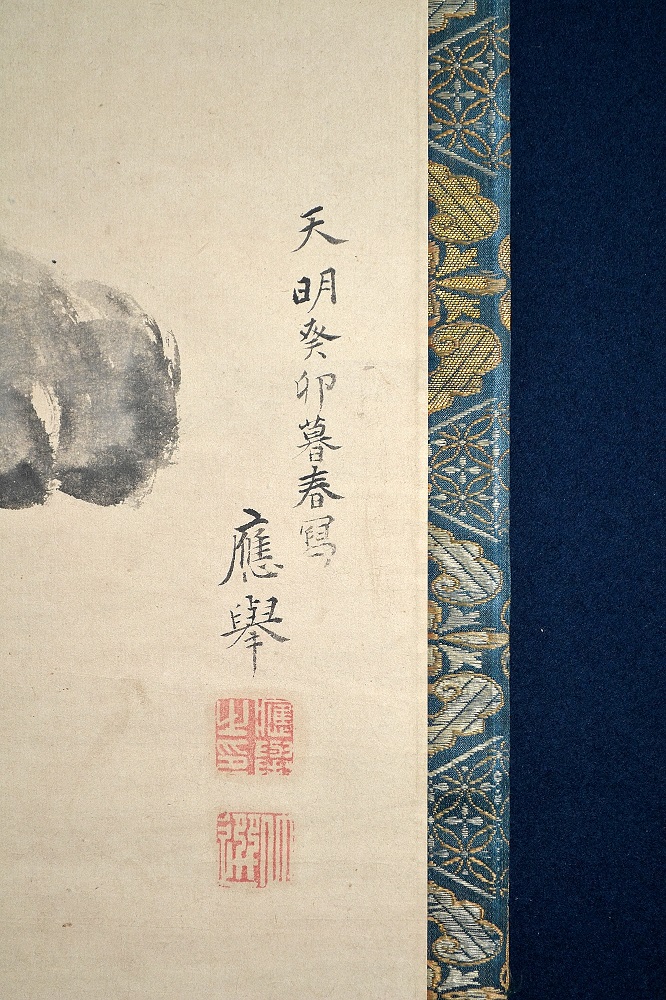 天明癸卯暮春寫
應舉
應舉之印
仲選